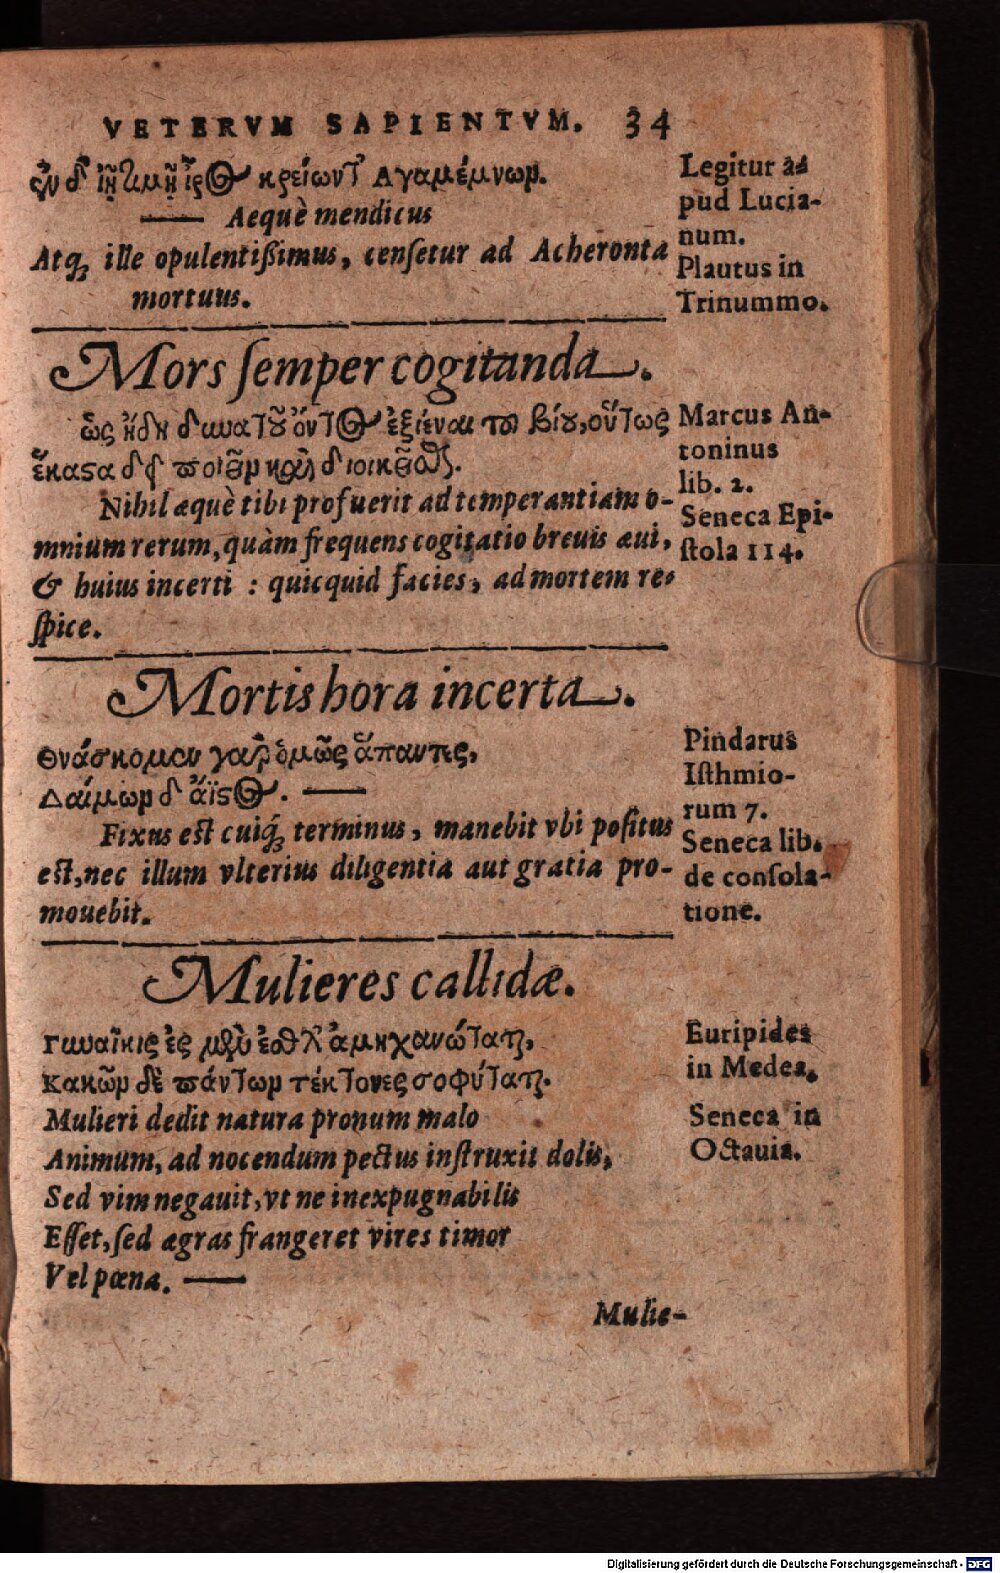 VETERVM SAPIENTVM. 34
ἐν δ' ἰῇ τιμῇ ἶρος κρείων τ' Αγαμέμνωρ.
Legitur a-
pud Lucia-
num.
—— Aequè mendicus
Atq; ille opulentißimus, censetur ad Acheronta
mortuus.
Plautus in
Trinummo.
Mors semper cogitanda.
ὡς ἤδη δυνατοῦ ὄντος ἐξιέναι τοῦ βίου, οὕτως
ἕκαστα
Marcus An-
toninus
lib. 2.
Nihil æquè tibi profuerit ad temperantiam o-
mnium rerum, quàm frequens cogitatio brevis æui,
& huius incerti : quicquid facies, ad mortem re-
spice.
Seneca Epi-
stola 114.
Mortis hora incerta.
Θνάσκομεν γὰρ ὁμῶς ἅπαντες,
Δαίμωρ δ' ἄϊσος. ——
Pindarus
Isthmio-
rum 7.
Fixus est cuiq; terminus, manebit vbi positus
est, nec illum vlterius diligentia aut gratia pro-
mouebit.
Seneca lib.
de consola-
tione.
Mulieres callidæ.
Γυναῖκες ἐς μὲν ἐσθλ' ἀμηχανώταται,
Κακῶρ δὲ πάντωρ τέκτονες σοφώταται.
Euripides
in Medea.
Mulieri dedit natura pronum malo
Animum, ad nocendum pectus instruxit dolis,
Sed vim negauit, vt ne inexpugnabilis
Esset, sed ægras frangeret vires timor
Vel pœna. ——
Seneca in
Octauia.
Mulie-
Digitalisierung gefördert durch die Deutsche Forschungsgemeinschaft - DFG